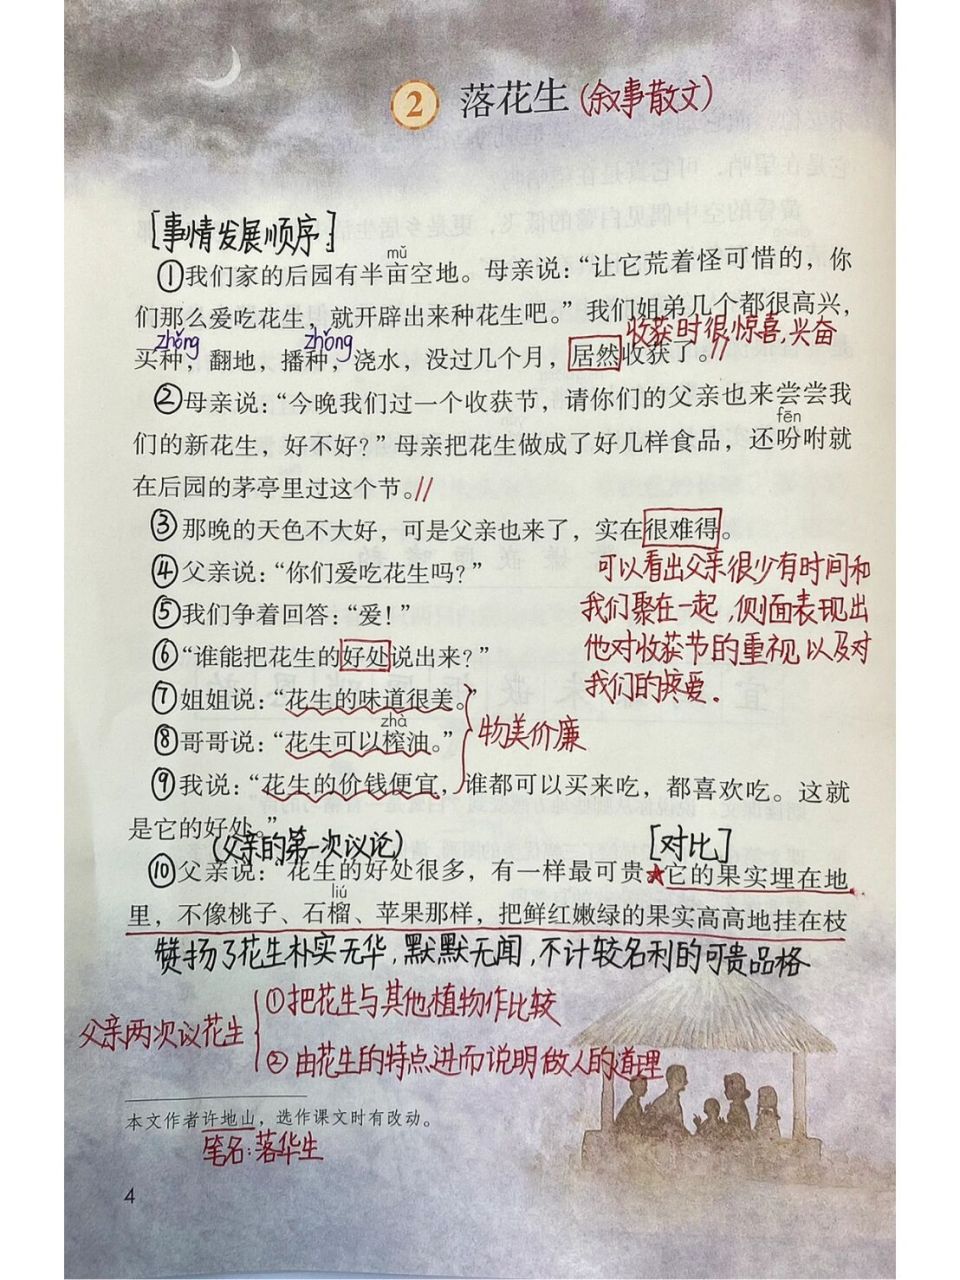 2 落花生(叙事散文)
[事情发展顺序]
mǔ
①我们家的后园有半亩空地。母亲说:“让它荒着怪可惜的,你
们那么爱吃花生,就开辟出来种花生吧。”我们姐弟几个都很高兴,
zhǒng zhǒng 收获时很惊喜,兴奋
买种,翻地,播种,浇水,没过几个月,居然收获了。//
②母亲说:“今晚我们过一个收获节,请你们的父亲也来尝尝我
fēn
们的新花生,好不好?”母亲把花生做成了好几样食品,还吩咐就
在后园的茅亭里过这个节。//
③那晚的天色不大好,可是父亲也来了,实在很难得。
④父亲说:“你们爱吃花生吗?”
可以看出父亲很少有时间和
我们聚在一起,侧面表现出
他对收获节的重视以及对
我们的疼爱.
⑤我们争着回答:“爱!”
⑥“谁能把花生的好处说出来?”
⑦姐姐说:“花生的味道很美。”
zhà
⑧哥哥说:“花生可以榨油。”
物美价廉
⑨我说:“花生的价钱便宜,谁都可以买来吃,都喜欢吃。这就
是它的好处。”
(父亲的第一次议论) [对比]
⑩父亲说:“花生的好处很多,有一样最可贵★它的果实埋在地
liú
里,不像桃子、石榴、苹果那样,把鲜红嫩绿的果实高高地挂在枝
赞扬了花生朴实无华,默默无闻,不计较名利的可贵品格
父亲两次议花生
①把花生与其他植物作比较
②由花生的特点进而说明做人的道理
本文作者许地山,选作课文时有改动。
笔名:落华生
4